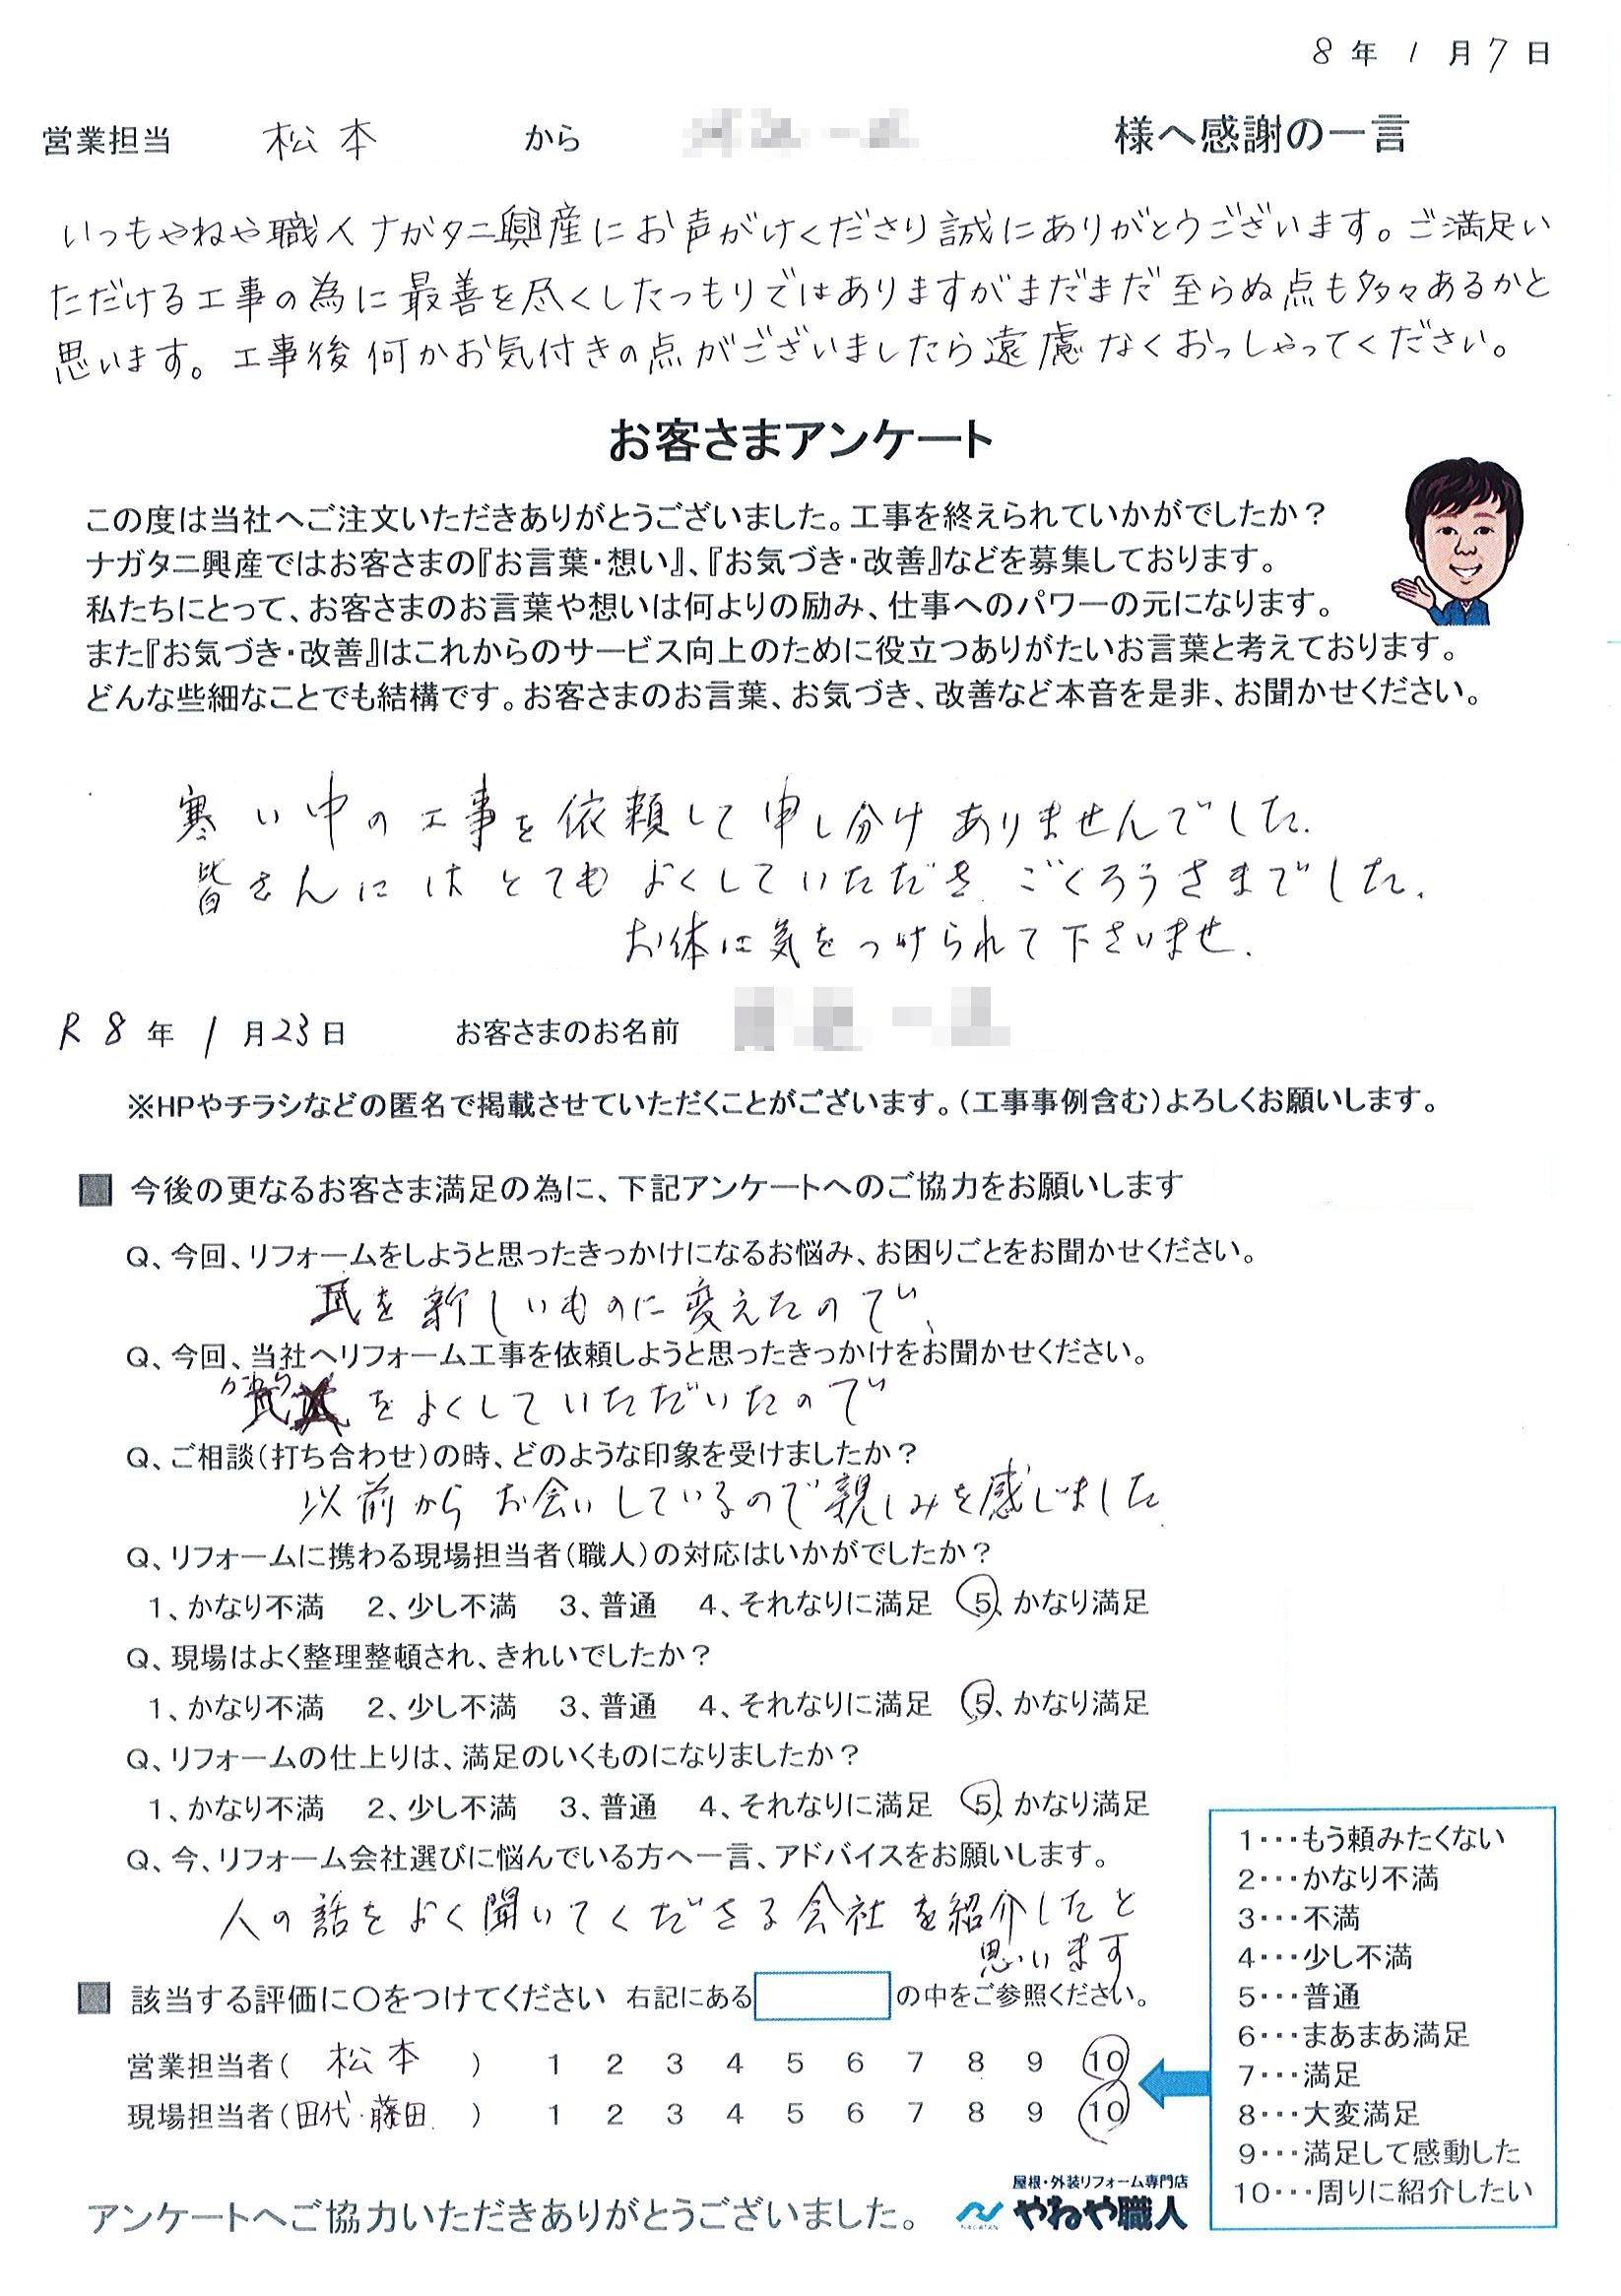 8年1月7日
営業担当 松本 から 様へ感謝の一言
いつもやねや職人ナガタニ興産にお声がけくださり誠にありがとうございます。ご満足い
ただける工事の為に最善を尽くしたつもりではありますがまだまだ至らぬ点も多々あるかと
思います。工事後何かお気付きの点がございましたら遠慮なくおっしゃってください。
お客さまアンケート
この度は当社へご注文いただきありがとうございました。工事を終えられていかがでしたか?
ナガタニ興産ではお客さまの『お言葉・想い』、『お気づき・改善』などを募集しております。
私たちにとって、お客さまのお言葉や想いは何よりの励み、仕事へのパワーの元になります。
また『お気づき・改善』はこれからのサービス向上のために役立つありがたいお言葉と考えております。
どんな些細なことでも結構です。お客さまのお言葉、お気づき、改善など本音を是非、お聞かせください。
寒い中の工事を依頼して申し分けありませんでした.
皆さんにはとてもよくしていただき ごくろうさまでした.
お体に気をつけられて下さいませ.
R8年1月23日 お客さまのお名前
※HPやチラシなどの匿名で掲載させていただくことがございます。(工事事例含む)よろしくお願いします。
■ 今後の更なるお客さま満足の為に、下記アンケートへのご協力をお願いします
Q、今回、リフォームをしようと思ったきっかけになるお悩み、お困りごとをお聞かせください。
を新しいものに変えたので、
Q、今回、当社へリフォーム工事を依頼しようと思ったきっかけをお聞かせください。
かわら をよくしていただいたので
Q、ご相談(打ち合わせ)の時、どのような印象を受けましたか?
以前からお会いしているので親しみを感じました
Q、リフォームに携わる現場担当者(職人)の対応はいかがでしたか?
1、かなり不満 2、少し不満 3、普通 4、それなりに満足 5、かなり満足
Q、現場はよく整理整頓され、きれいでしたか?
1、かなり不満 2、少し不満 3、普通 4、それなりに満足 5、かなり満足
Q、リフォームの仕上りは、満足のいくものになりましたか?
1、かなり不満 2、少し不満 3、普通 4、それなりに満足 5、かなり満足
Q、今、リフォーム会社選びに悩んでいる方へ一言、アドバイスをお願いします。
人の話をよく聞いてくださる会社を紹介したと
思います
■ 該当する評価に○をつけてください 右記にある の中をご参照ください。
営業担当者( 松本 ) 1 2 3 4 5 6 7 8 9 10
現場担当者(田代・藤田) 1 2 3 4 5 6 7 8 9 10
1・・・もう頼みたくない
2・・・かなり不満
3・・・不満
4・・・少し不満
5・・・普通
6・・・まあまあ満足
7・・・満足
8・・・大変満足
9・・・満足して感動した
10・・・周りに紹介したい
アンケートへご協力いただきありがとうございました。
NAGATANI
屋根・外装リフォーム専門店
やねや職人